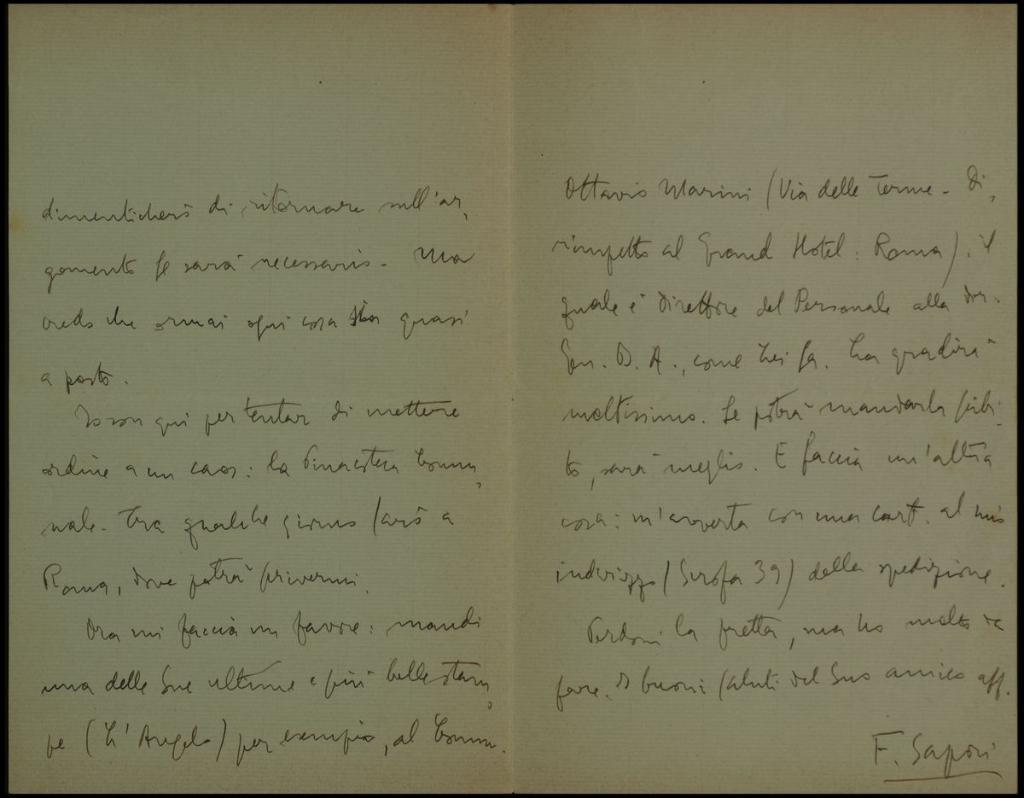 dimenticherò di ritornare sull'ar-
gomento se sarà necessario. Ma
credo che ormai ogni cosa sia quasi
a posto.
Io son qui per tentar di mettere
ordine a un caos: la Pinacoteca Comu-
nale. Tra qualche giorno sarò a
Roma, dove potrà scrivermi.
Ora mi faccia un favore: mandi
una delle Sue ultime e più belle stam-
pe (L'Angelo) per esempio, al Comm.
Ottavio Marini (Via delle Terme - di-
rimpetto al Grand Hotel: Roma). il
quale è Direttore del Personale alla Dir.
Gen. B. A., come Lei sa. La gradirà
moltissimo. Se potrà mandarla subi-
to, sarà meglio. E faccia un'altra
cosa: m'avverta con una cart. al mio
indirizzo (Scrofa 39) della spedizione.
Perdoni la fretta, ma ho molto da
fare. buoni saluti del Suo amico aff.
F. Sapori